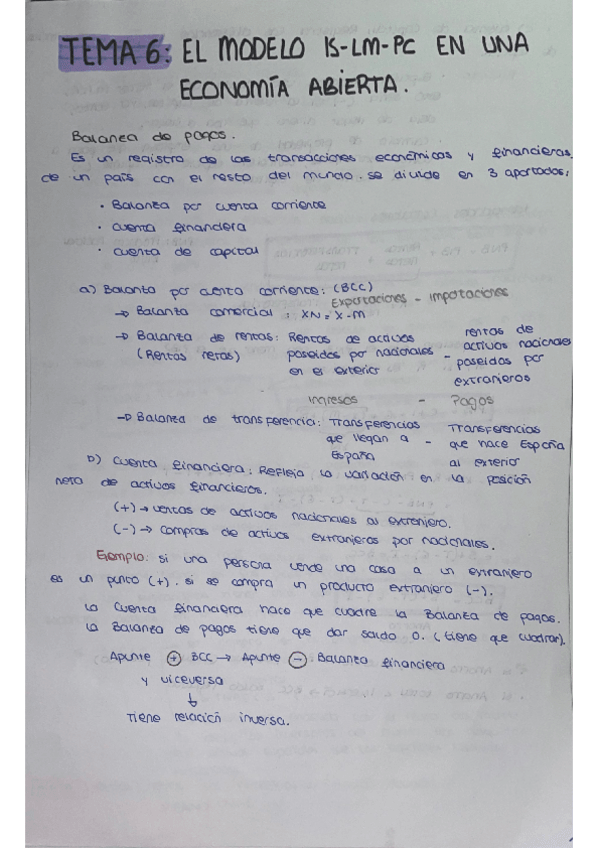 TEMA 6: EL MODELO IS-LM-PC EN UNA
ECONOMÍA ABIERTA.
Balanza de pagos.
Es un registro de las transacciones económicas y financieras
de un país con el resto del mundo. se divide en 3 apartados:
· Balanza por cuenta corriente
· cuenta financiera
· cuenta de capital
a) Balanza por cuenta corriente: (BCC)
Exportaciones - Importaciones
→ Balanza comercial : XN = X-M
→ Balanza de rentas: Rentas de activos rentas de activos nacionales
(Rentas netas) poseidos por nacionales - poseidos por
en el exterior extranjeros
Ingresos - Pagos
→ Balanza de transferencia: Transferencias Transferencias
que llegan a - que hace España
España al exterior
b) Cuenta financiera: Refleja la variación en la posición
neta de activos financieros.
(+) → ventas de activos nacionales al extranjero.
(-) → compras de activos extranjeros por nacionales.
Ejemplo: si una persona vende una casa a un extranjero
es un punto (+). si se compra un producto extranjero (-).
La cuenta financiera hace que cuadre la Balanza de pagos.
La Balanza de pagos tiene que dar saldo 0. (tiene que cuadrar).
Apunte + BCC → Apunte - Balanza financiera
y viceversa
↓
Tiene relación inversa.